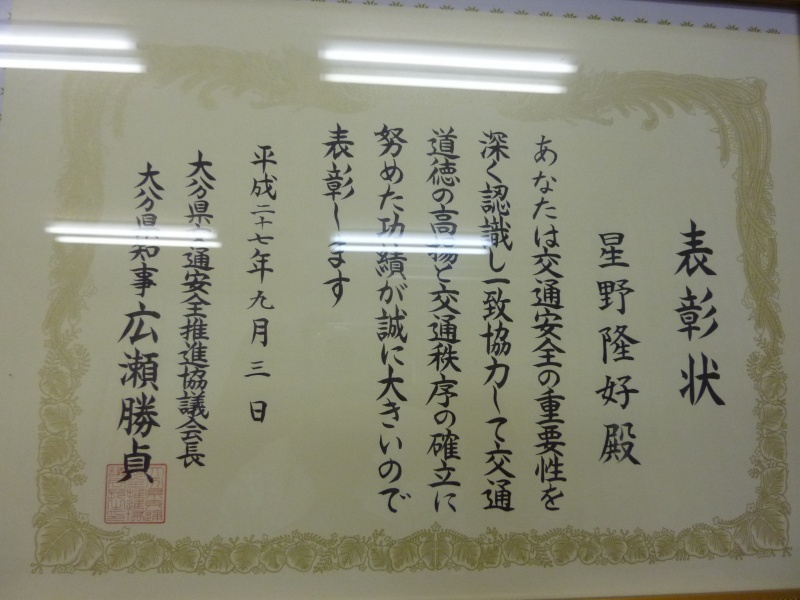 表彰状
星野隆好殿
あなたは交通安全の重要性を
深く認識し一致協力して交通
道徳の高揚と交通秩序の確立に
努めた功績が誠に大きいので
表彰します
平成二十七年九月三日
大分県交通安全推進協議会長
大分県知事 広瀬勝貞